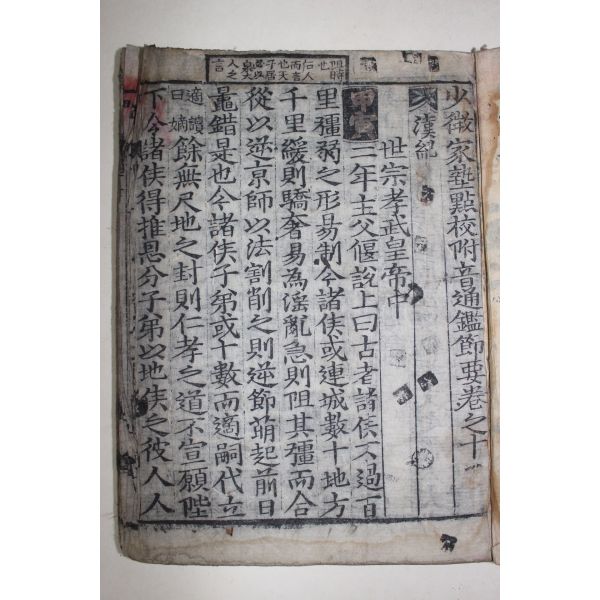 少微家塾點校附音通鑑節要卷之十一
漢紀
世宗孝武皇帝中
甲寅二年主父偃說上曰古者諸侯不過百
里彊弱之形易制今諸侯或連城數十地方
千里緩則驕奢易為淫亂急則阻其彊而合
從以逆京師以法割削之則逆節萌起前日
鼂錯是也今諸侯子弟或十數而適嗣代立
適讀曰嫡餘無尺地之封則仁孝之道不宣願陛
下令諸侯得推恩分子弟以地侯之彼人人